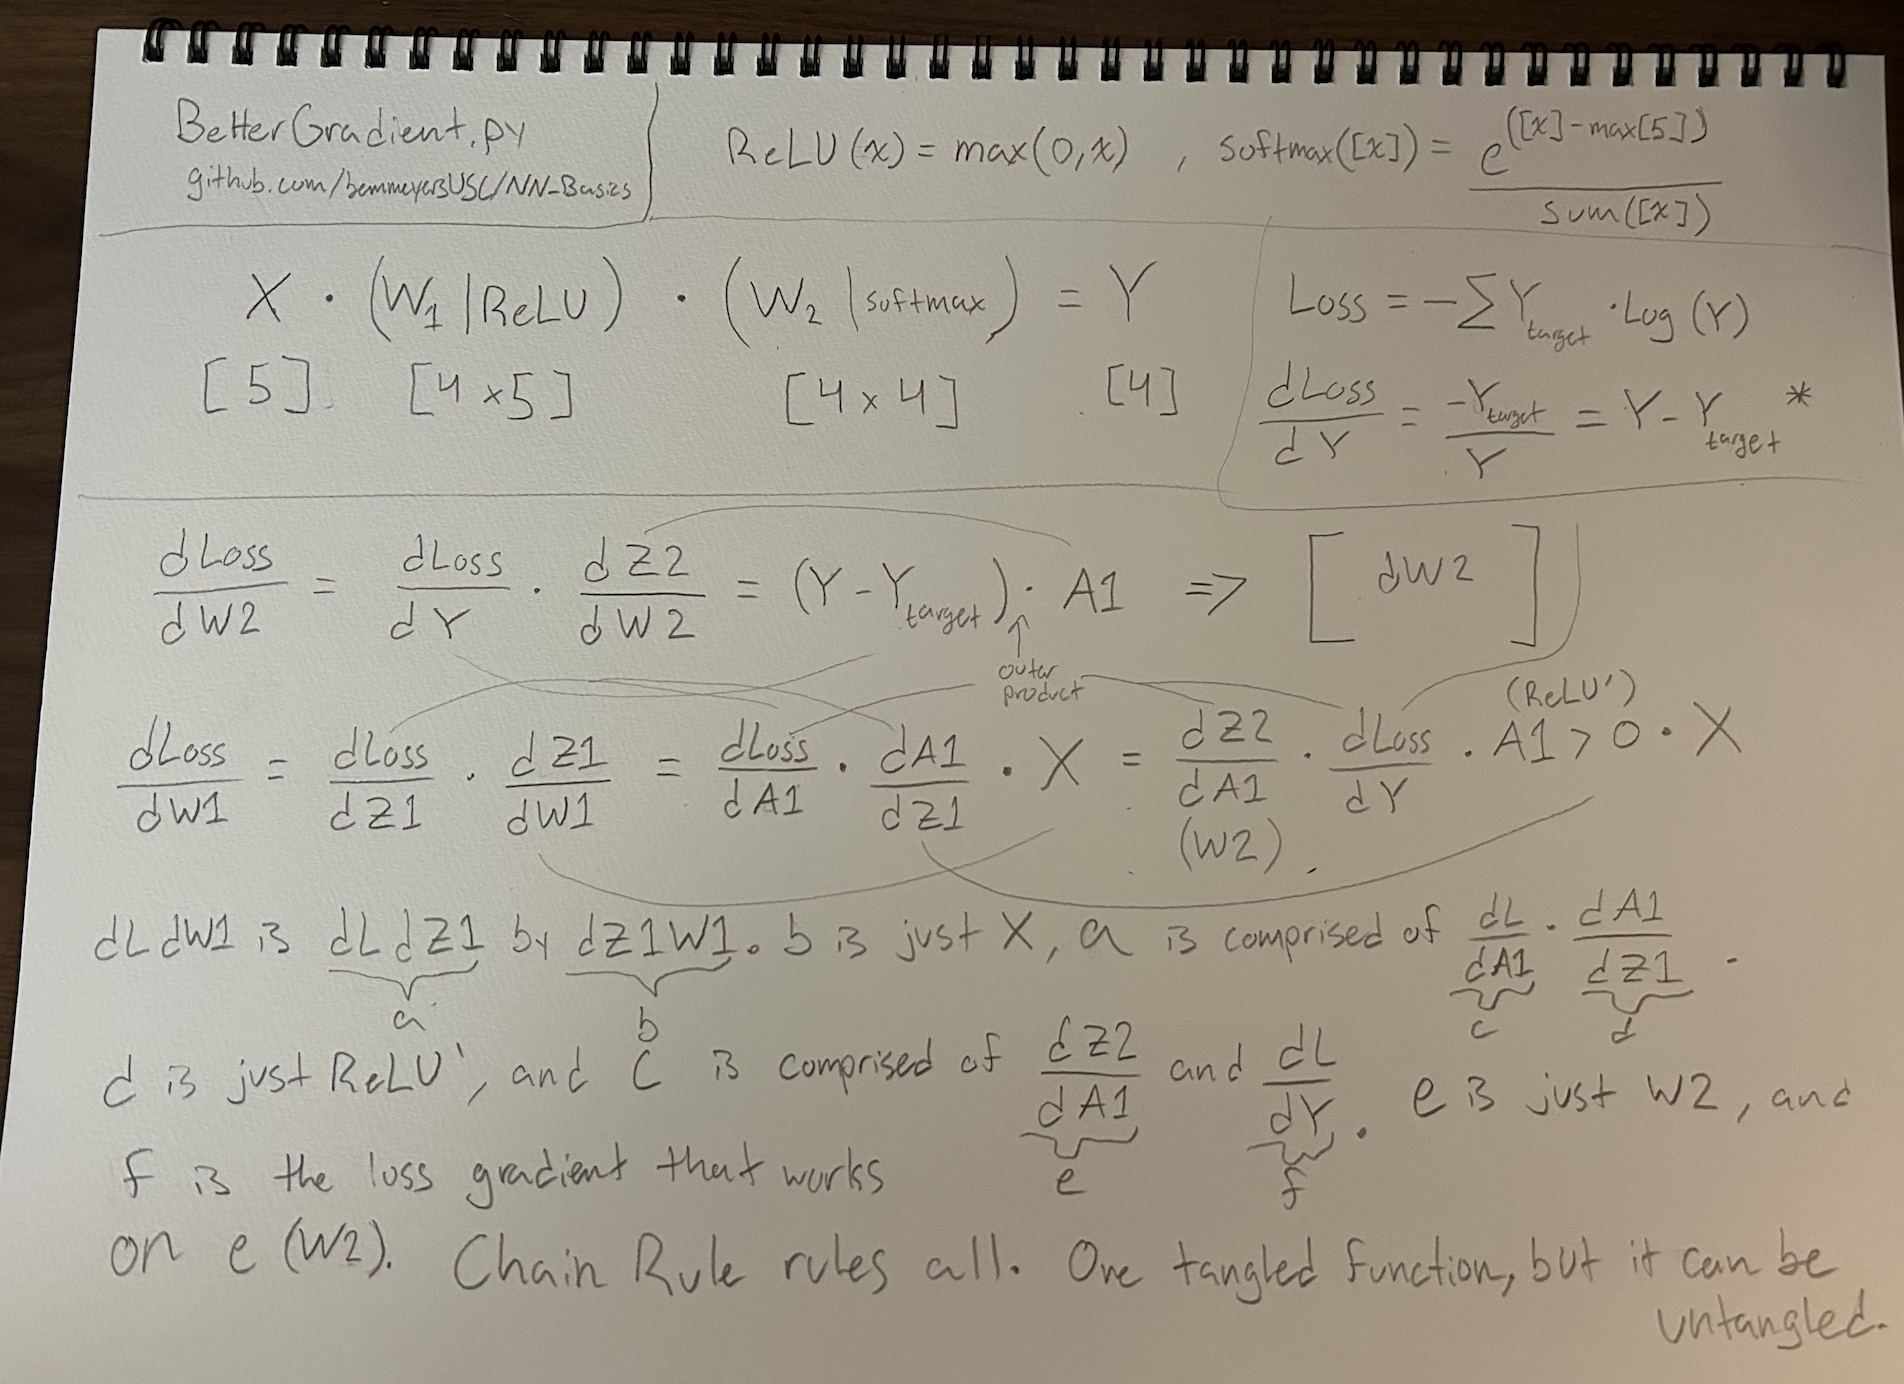 BetterGradient.py
github.com/benmeyersUSC/NN-Basics
ReLU(x) = max(0,x) , softmax([x]) = e^([x]-max[5]) / sum([x])
X · (W₁|ReLU) · (W₂|softmax) = Y
[5] [4x5] [4x4] [4]
Loss = -∑Y_target · Log(Y)
dLoss/dY = -Y_target/Y = Y - Y_target *
dLoss/dW2 = dLoss/dY · dZ2/dW2 = (Y - Y_target) · A1 => [ dW2 ]
outer
product
(ReLU')
dLoss/dW1 = dLoss/dZ1 · dZ1/dW1 = dLoss/dA1 · dA1/dZ1 · X = dZ2/dA1 · dLoss/dY · A1 > 0 · X
(W2)
dLdW1 is dLdZ1 by dZ1W1. b is just X, a is comprised of dL/dA1 · dA1/dZ1 .
a b c d
d is just ReLU', and C is comprised of dZ2/dA1 and dL/dY. e is just W2, and
e f
f is the loss gradient that works
on e (W2). Chain Rule rules all. One tangled function, but it can be
untangled.